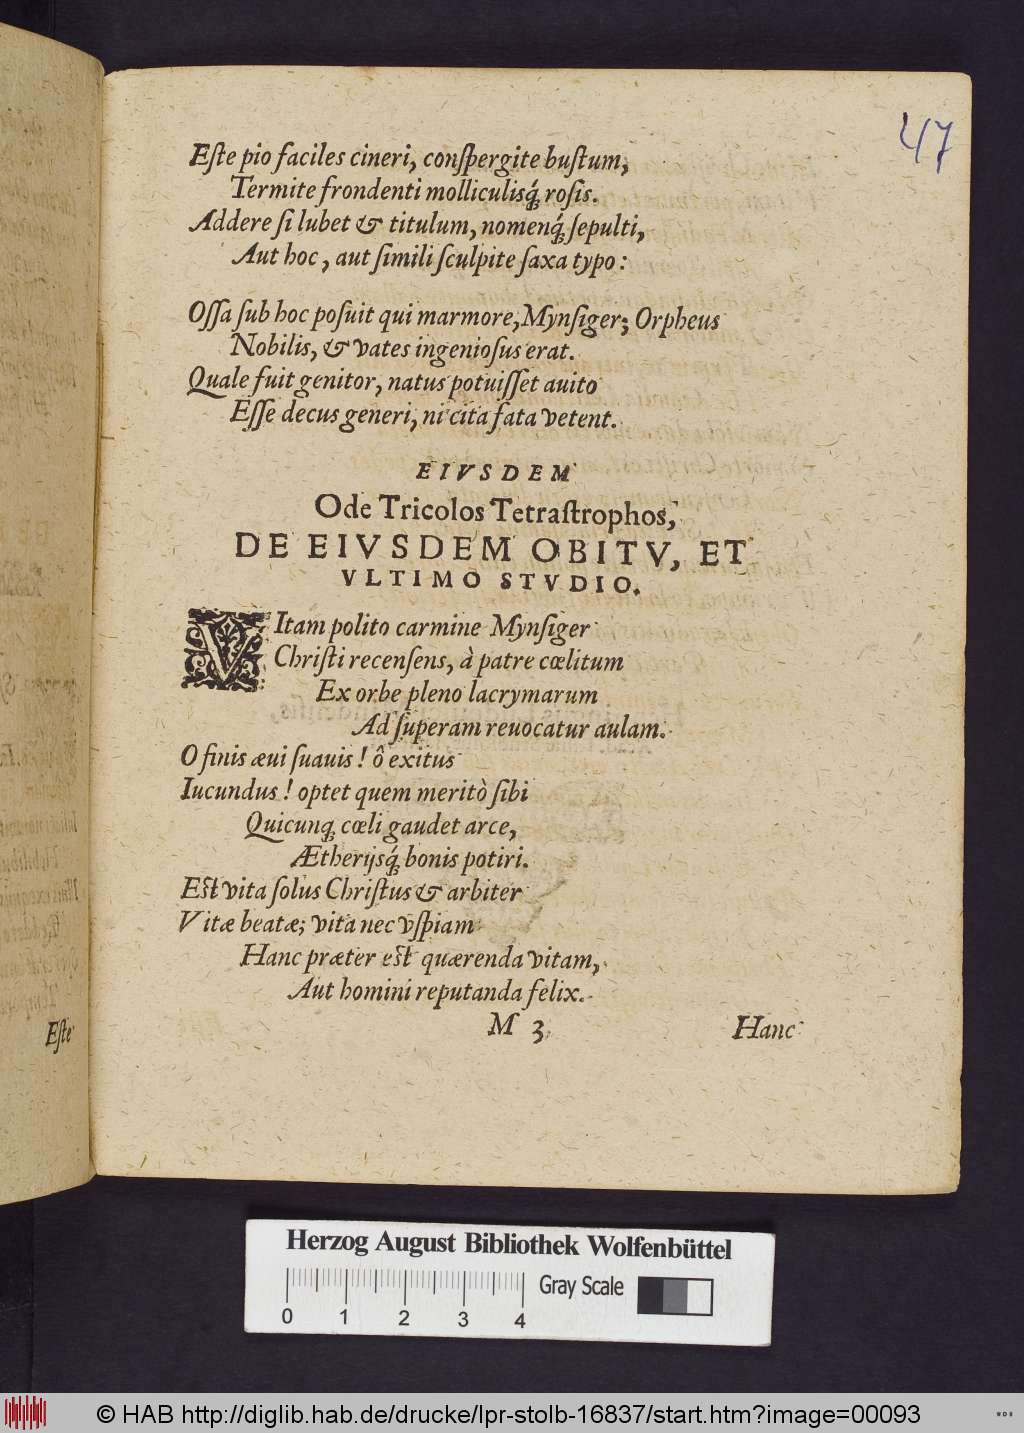 47
Eſte pio faciles cineri, conſpergite buſtum,
Termite frondenti molliculisq́; roſis.
Addere ſi lubet & titulum, nomenq́; ſepulti,
Aut hoc, aut ſimili ſculpite ſaxa typo:
Oſſa ſub hoc poſuit qui marmore, Mynſiger; Orpheus
Nobilis, & vates ingenioſus erat.
Quale fuit genitor, natus potuiſſet auito
Eſſe decus generi, ni cita fata vetent.
EIVSDEM
Ode Tricolos Tetraſtrophos,
DE EIVSDEM OBITV, ET
VLTIMO STVDIO.
VItam polito carmine Mynſiger
Chriſti recenſens, à patre cœlitum
Ex orbe pleno lacrymarum
Ad ſuperam reuocatur aulam.
O finis æui ſuauis! ô exitus
Iucundus! optet quem meritò ſibi
Quicunq; cœli gaudet arce,
Ætherijsq́; bonis potiri.
Eſt vita ſolus Chriſtus & arbiter
Vitæ beatæ; vita nec vſpiam
Hanc præter eſt quærenda vitam,
Aut homini reputanda felix.
M 3
Hanc
Eſte
Herzog August Bibliothek Wolfenbüttel
Gray Scale
0 1 2 3 4
© HAB http://diglib.hab.de/drucke/lpr-stolb-16837/start.htm?image=00093